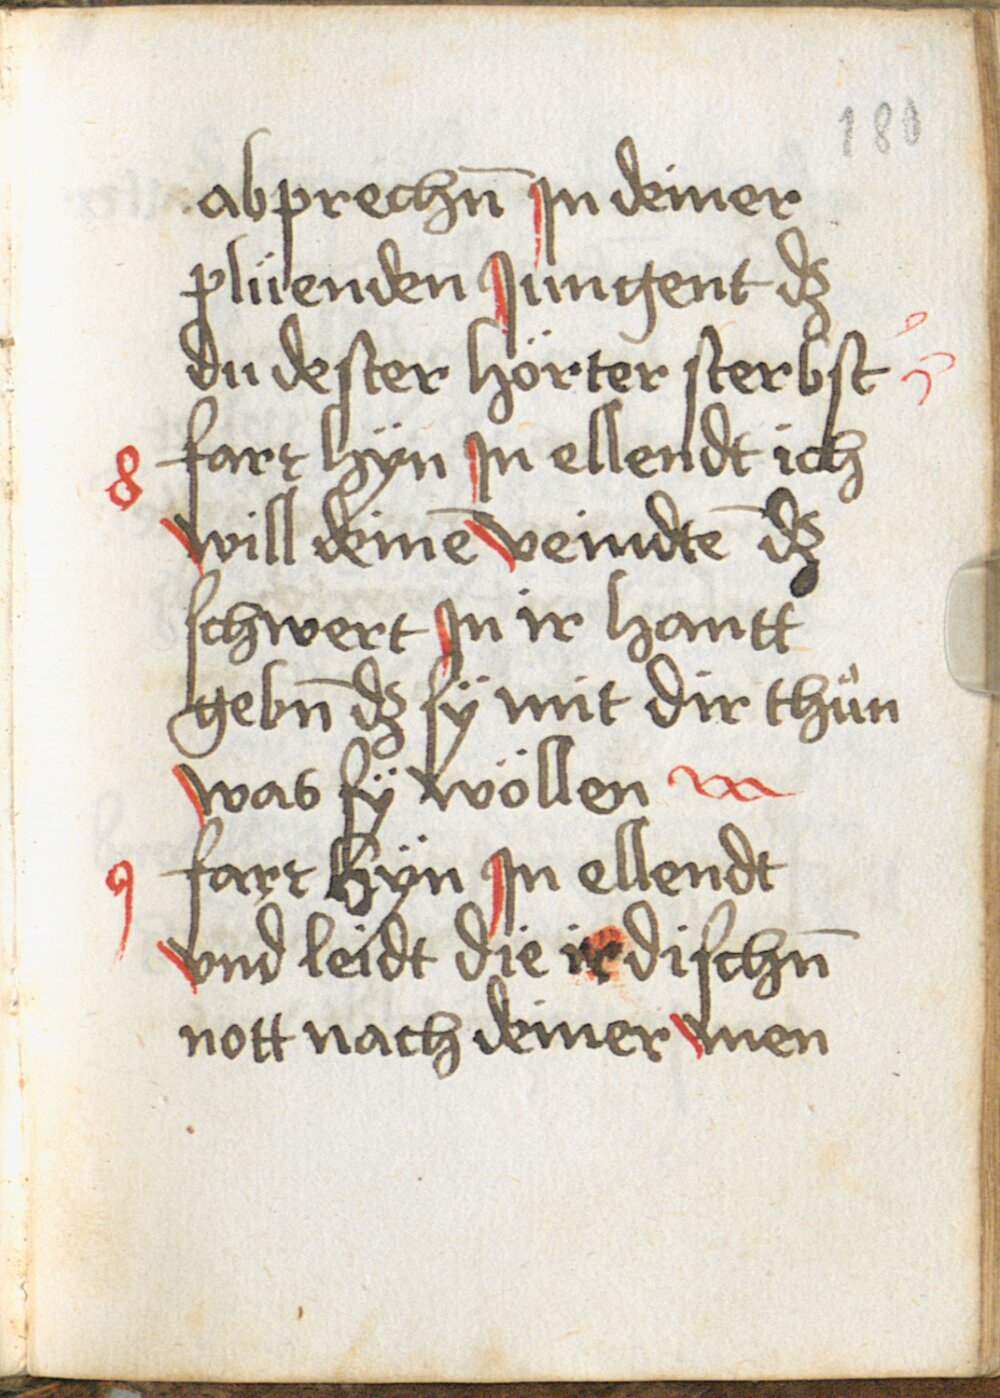 180
abprechn̄ Jn deiner
plüenden Jungent dʒ
du dester hörter sterbst
8 fart hÿn Jn ellendt ich
will deinē veindtē dʒ
schwert Jn ir hantt
gebn̄ dʒ sÿ mit dir thůn
was sÿ wöllen
9 fart hÿn Jn ellendt
vnd leidt die irdischn̄
nott nach deiner men